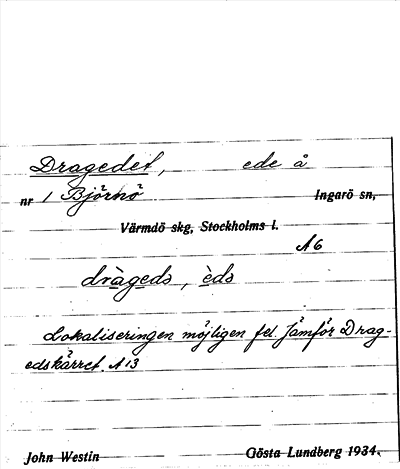 Dragedet, ede å
nr 1 Björnö Ingarö sn,
Värmdö skg, Stockholms l.
A6
dràgeds, èds
Lokaliseringen möjligen fel. Jämför Drag-
edskärret. A13
John Westin Gösta Lundberg 1934.